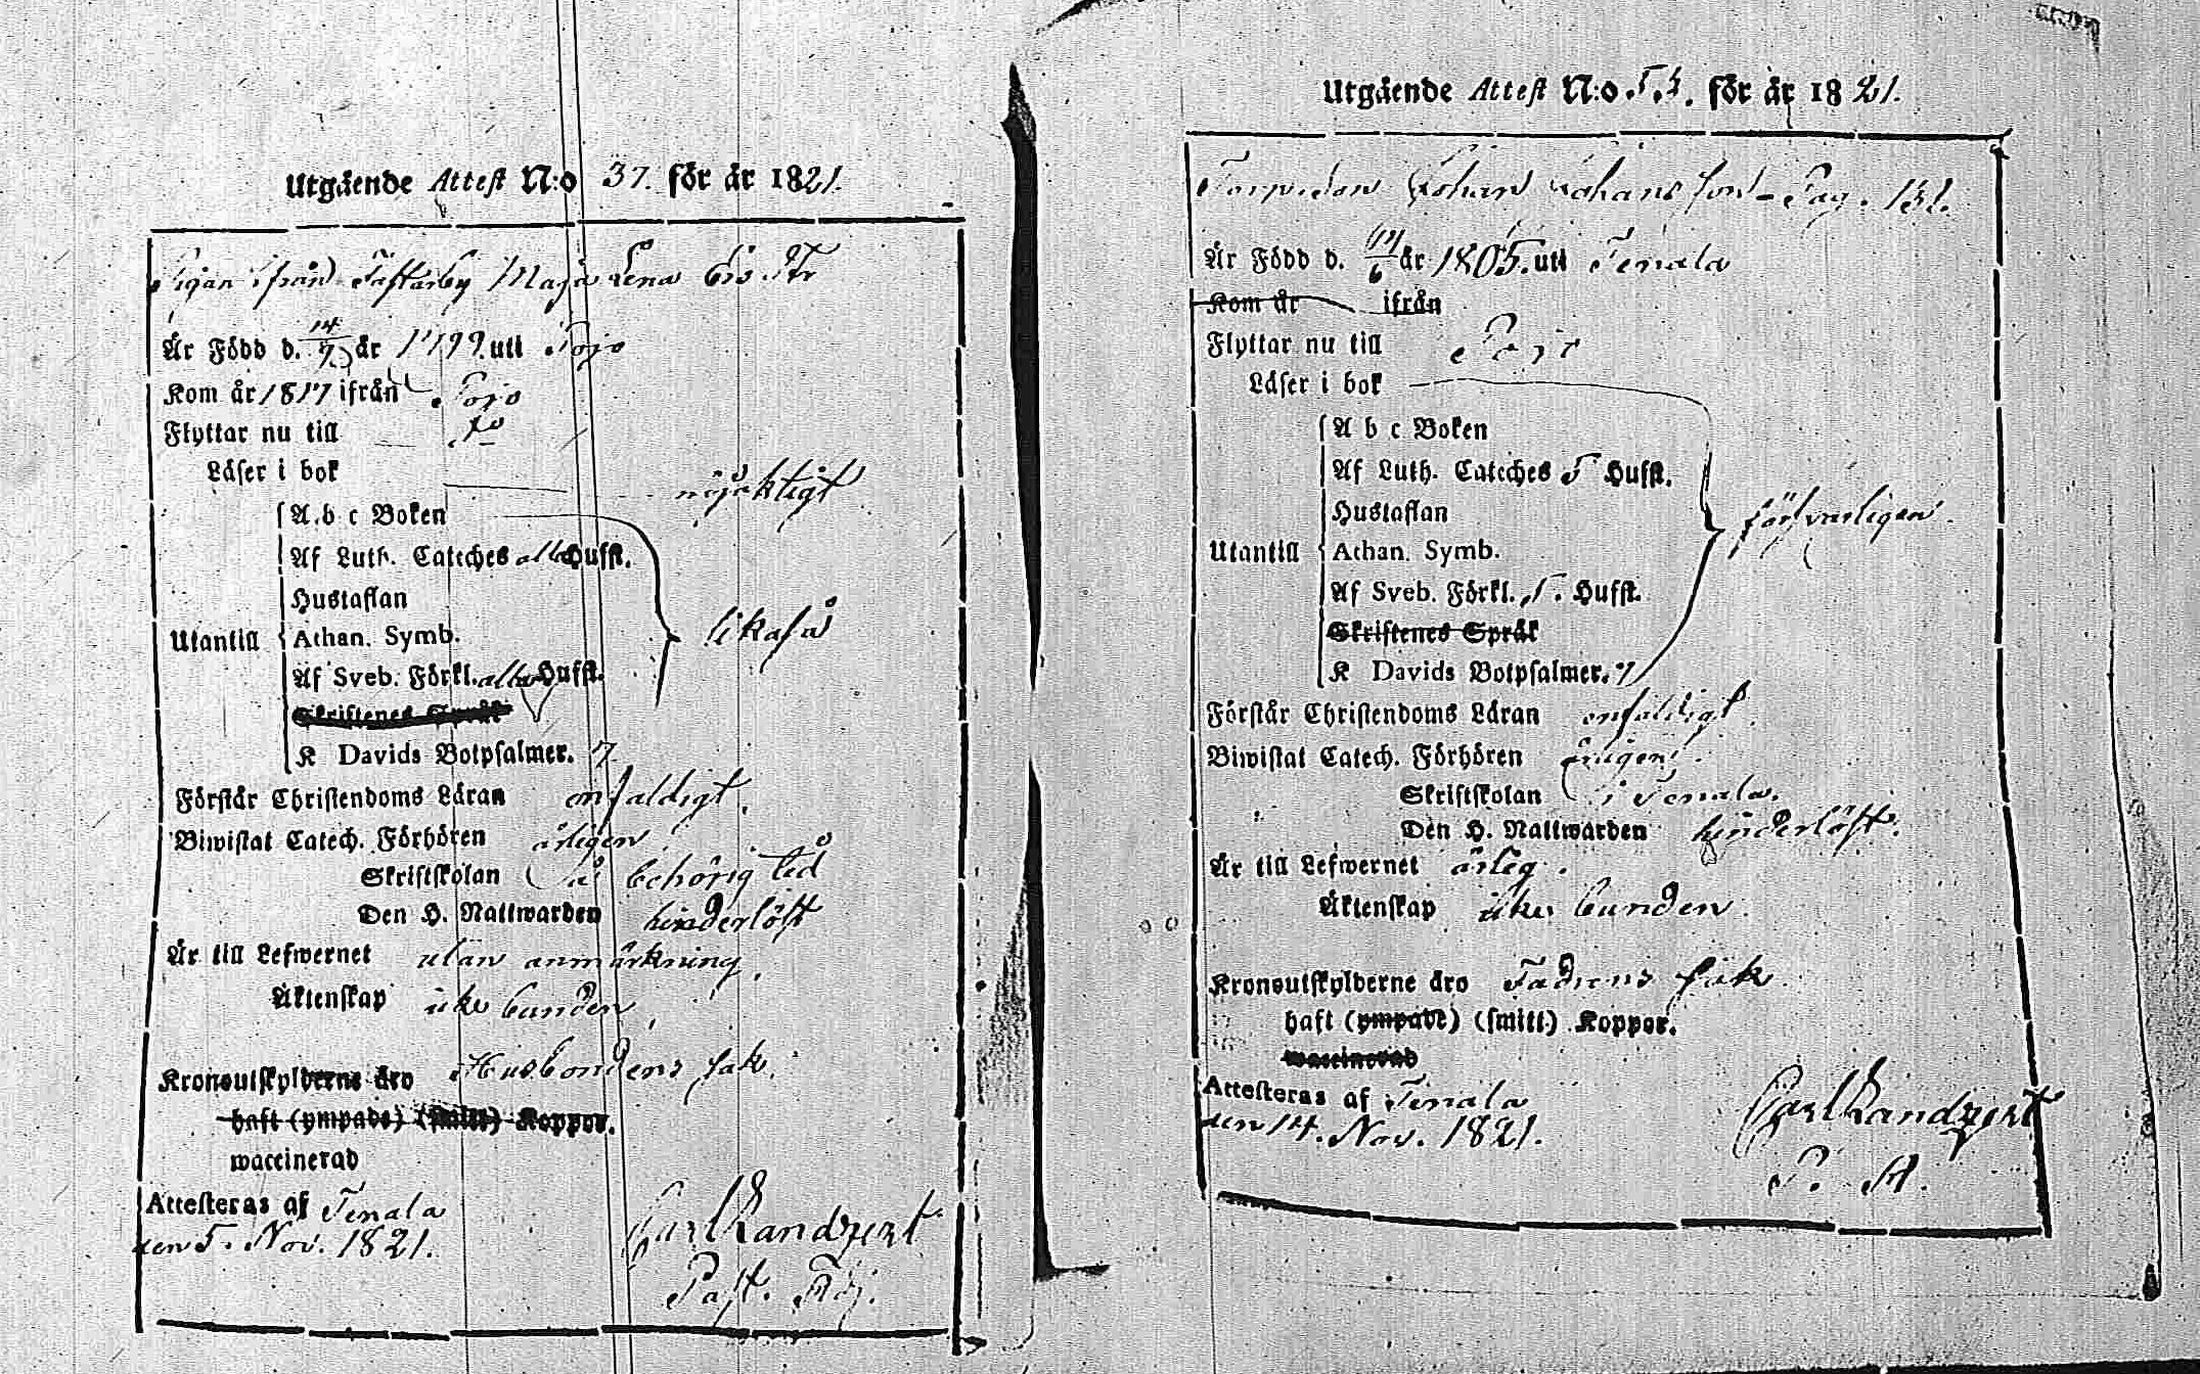 Utgående Attest N:o 37. för år 1821.
Pigan ifrån Täfkarby Maja Lena
Är Född d. 14/7 år 1799. uti Pojo
Kom år 1817 ifrån Pojo
Flyttar nu till do
Läser i bok nöjaktigt
A b c Boken
Af Luth. Cateches alla Hufst.
Hustaflan
Utantill Athan. Symb. likaså
Af Sveb. Förkl. alla Hufst.
Skriftenes Språk
K Davids Botpsalmer. 7
Förstår Christendoms Läran enfaldigt.
Biwistat Catech. Förhören årligen
Skriftskolan å behörig tid
Den H. Nattwarden hinderlöst
Är till Lefwernet utan anmärkning.
Äktenskap icke bunden
Kronoutskylderne äro Husbondens sak.
haft (ympade) (smitt) Koppor.
waccinerad
Attesteras af Tenala
den 5. Nov. 1821.
Carl Landzert
Past. Adj.
Utgående Attest N:o 53. för år 1821.
Johan Johansson Pag. 131.
Är Född d. /6 år 1805. uti Tenala
Kom år ifrån
Flyttar nu till Pojo
Läser i bok
A b c Boken
Af Luth. Cateches 5 Hufst.
Hustaflan
Utantill Athan. Symb. försvarligen.
Af Sveb. Förkl. 5. Hufst.
Skriftenes Språk
K Davids Botpsalmer. 7
Förstår Christendoms Läran enfaldigt.
Biwistat Catech. Förhören årligen.
Skriftskolan i Tenala.
Den H. Nattwarden hinderlöst.
Är till Lefwernet ärlig.
Äktenskap icke bunden.
Kronoutskylderne äro Fadrens sak.
haft (ympade) (smitt) Koppor.
waccinerad
Attesteras af Tenala
den 14. Nov. 1821.
Carl Landzert
P. A.